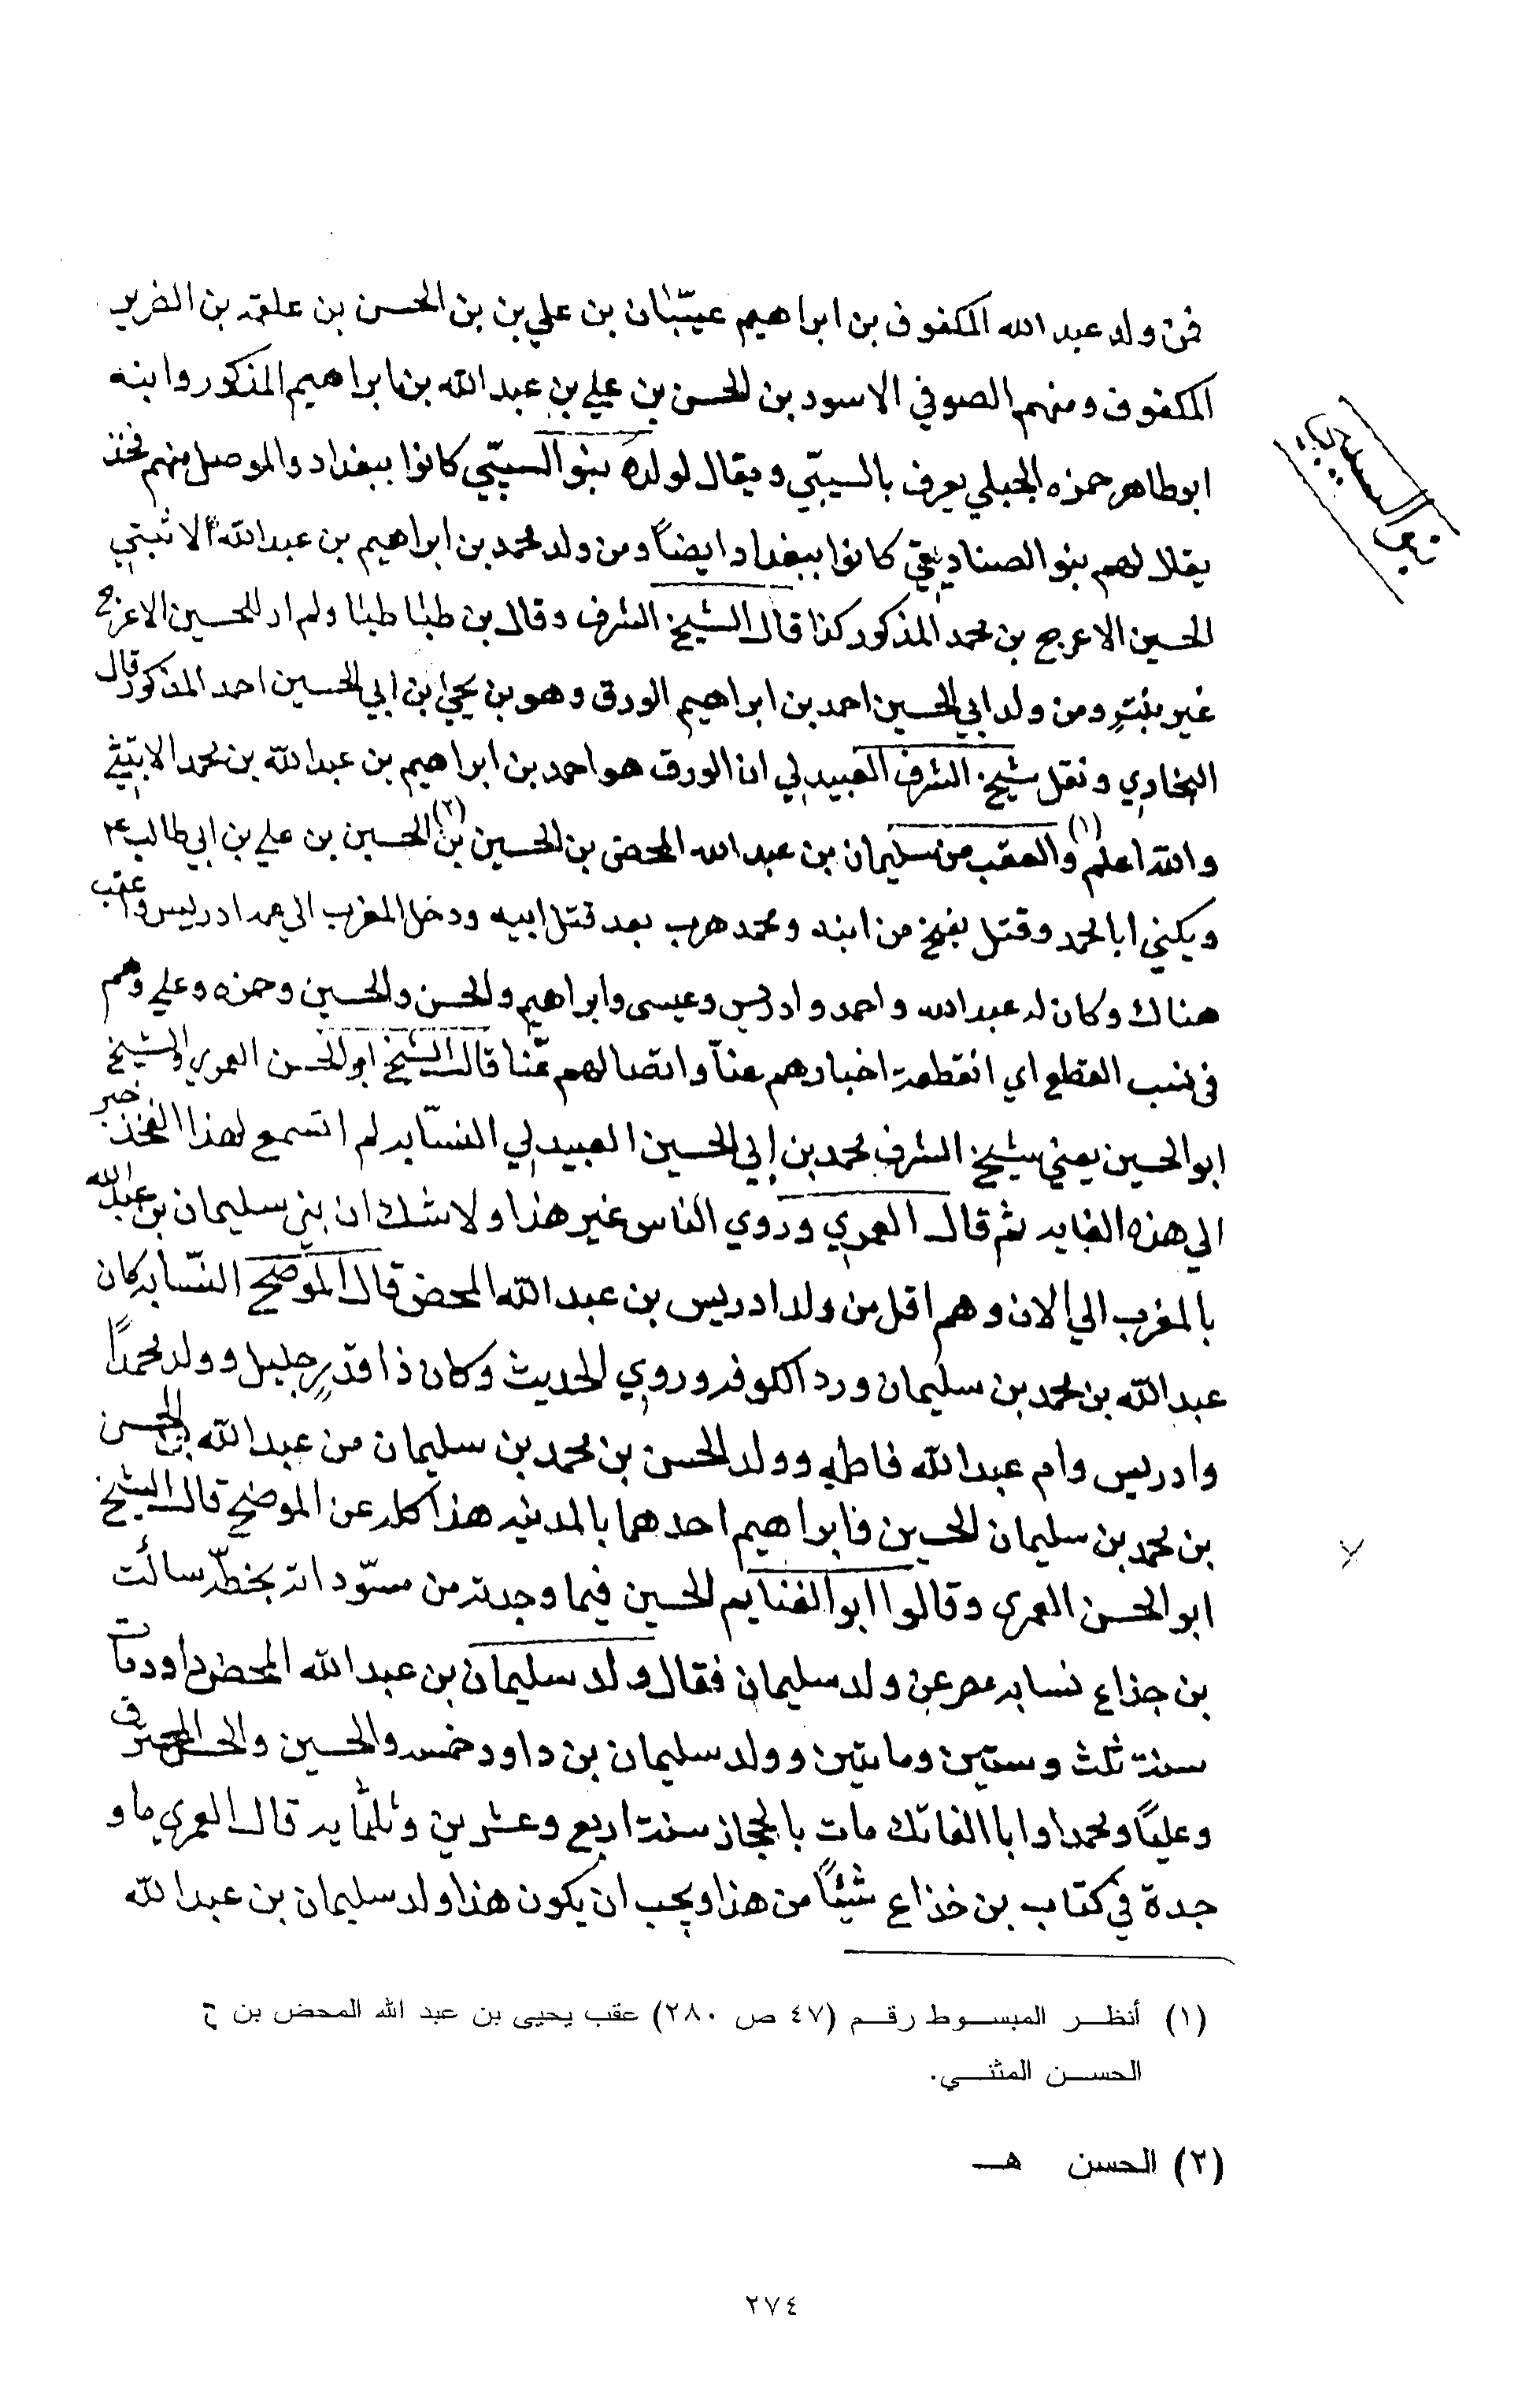 فمن ولد عبد الله المكفوف بن ابراهيم عيبان بن علي بن بن الحسن بن علقمه بن الضرير
المكفوف ومنهم الصوفي الاسود بن الحسن بن علي بن عبد الله بن ابراهيم المذكور وابنه
ابو طاهر حمزه الجبلي يعرف بالسيبّي ويقال لولده بنو السيبّي كانوا ببغداد والموصل منهم فخذ
يقلا لهم بنو الصناديقي كانوا ببغداد ايضاً ومن ولد محمد بن ابراهيم بن عبد الله الاثبتي
الحسين الاعرج بن محمد المذكور كذا قال الشيخ الشرف وقال بن طبٰا طبٰا ولم ار للحسين الاعرج
غير بنتٍ ومن ولد ابي الحسين احمد بن ابراهيم الورق وهو بن يحيٰ بن ابي الحسين احمد المذكور قال
البخاري ونقل شيخ الشرف العبيدلي ان الورق هو احمد بن ابراهيم بن عبد الله بن محمد الابتثي
والله اعلم (١) والعقب من سليمان بن عبد الله المحض بن الحسين بن (٢) الحسين بن علي بن ابي طالب ع
ويكني ابا محمد وقتل بفخ من ابنه ومحمد هرب بعد قتل ابيه ودخل المغرب الي عمه ادريس واعقب
هناك وكان له عبد الله واحمد وادريس وعيسى وابراهيم والحسن والحسين وحمزه وعلي وهم
في نسب القطع اي انقطعت اخبارهم عنا واتصالهم عنّا قال الشيخ ابو الحسن العمري والشيخ
ابو الحسين يعني شيخ الشرف محمد بن ابي الحسين العبيدلي النسّابه لم اتسمع لهذا الفخذ خبر
الي هذه الغايه ثم قال العمري وروي الناس غير هذا ولا شك ان بني سليمان بن عبد الله
بالمغرب الي الان وهم اقل من ولد ادريس بن عبد الله المحض قال الموضح النسّابه كان
عبد الله بن محمد بن سليمان ورد الكوفه وروي الحديث وكان ذا قدرٍ جليل وولد محمداً
وادريس وام عبد الله فاطمه وولد الحسن بن محمد بن سليمان من عبد الله بن الحسن
بن محمد بن سليمان الحسين فابراهيم احدهما بالمدينه هذا كله عن الموضح قال الشيخ
ابو الحسن العمري وقالوا ابو الغنايم الحسين فيما وجدته من مسوّداته بخطّه سالت
بن جذاع نسابه مصر عن ولد سليمان فقال ولد سليمان بن عبد الله المحض داود مات
سنة ثلث وستين وماىتين وولد سليمان بن داود خمسه والحسين والحسن المحترق
وعلياً ومحمدا وابا الفاتك مات بالحجاز سنة اربع وعشرين وثلثمايه قال العمري ما و
جدة في كتاب بن خذاع شيئاً من هذا ويجب ان يكون هذا ولد سليمان بن عبد الله
بنو السيبي
(١) أنظر المبسوط رقم (٤٧ ص ٢٨٠) عقب يحيى بن عبد الله المحض بن
الحسن المثنى.
(٢) الحسن هـ
٢٧٤